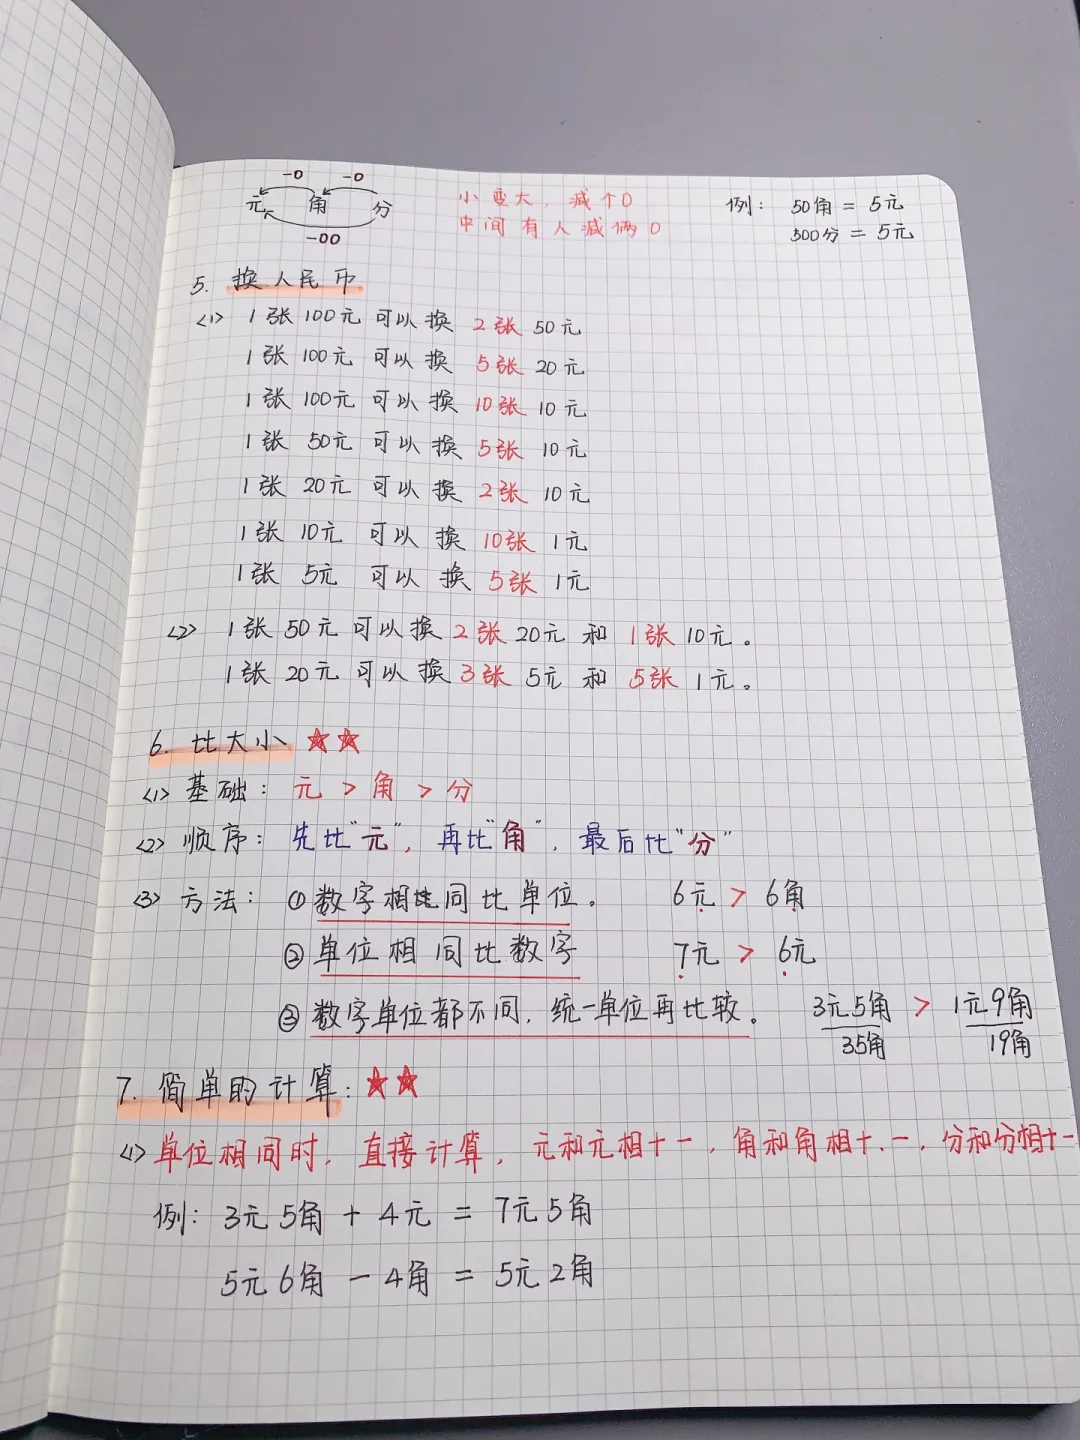 -0 -0
元 角 分
-00
小变大，减个0
中间有人减俩0
例：50角 = 5元
500分 = 5元
5. 换人民币
<1> 1张 100元 可以换 2张 50元
1张 100元 可以换 5张 20元
1张 100元 可以换 10张 10元
1张 50元 可以换 5张 10元
1张 20元 可以换 2张 10元
1张 10元 可以换 10张 1元
1张 5元 可以换 5张 1元
<2> 1张 50元 可以换 2张 20元 和 1张 10元。
1张 20元 可以换 3张 5元 和 5张 1元。
6. 比大小 ★★
<1> 基础：元 > 角 > 分
<2> 顺序：先比"元"，再比"角"，最后比"分"
<3> 方法：①数字相同比单位。 6元 > 6角
②单位相同比数字 7元 > 6元
③数字单位都不同，统一单位再比较。 3元5角 > 1元9角
35角 19角
7. 简单的计算：★★
<1> 单位相同时，直接计算，元和元相+-，角和角相+.-，分和分相+-
例：3元5角 + 4元 = 7元5角
5元6角 - 4角 = 5元2角